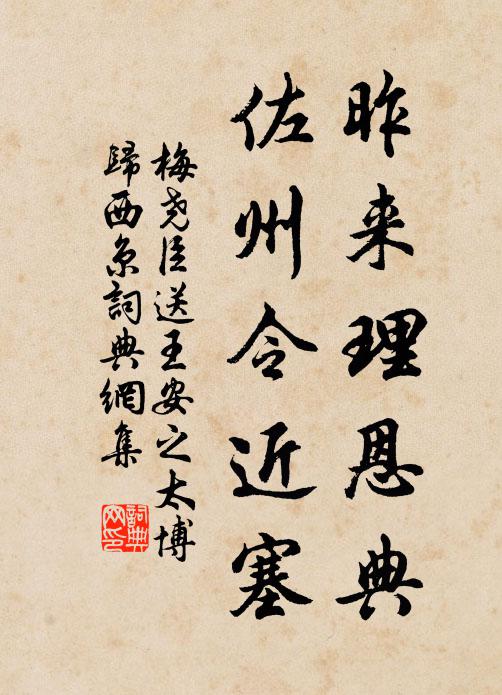 昨来理恩典
佐州令近塞
梅尧臣送王安之太博
歸西京詞典網集
詞典网印